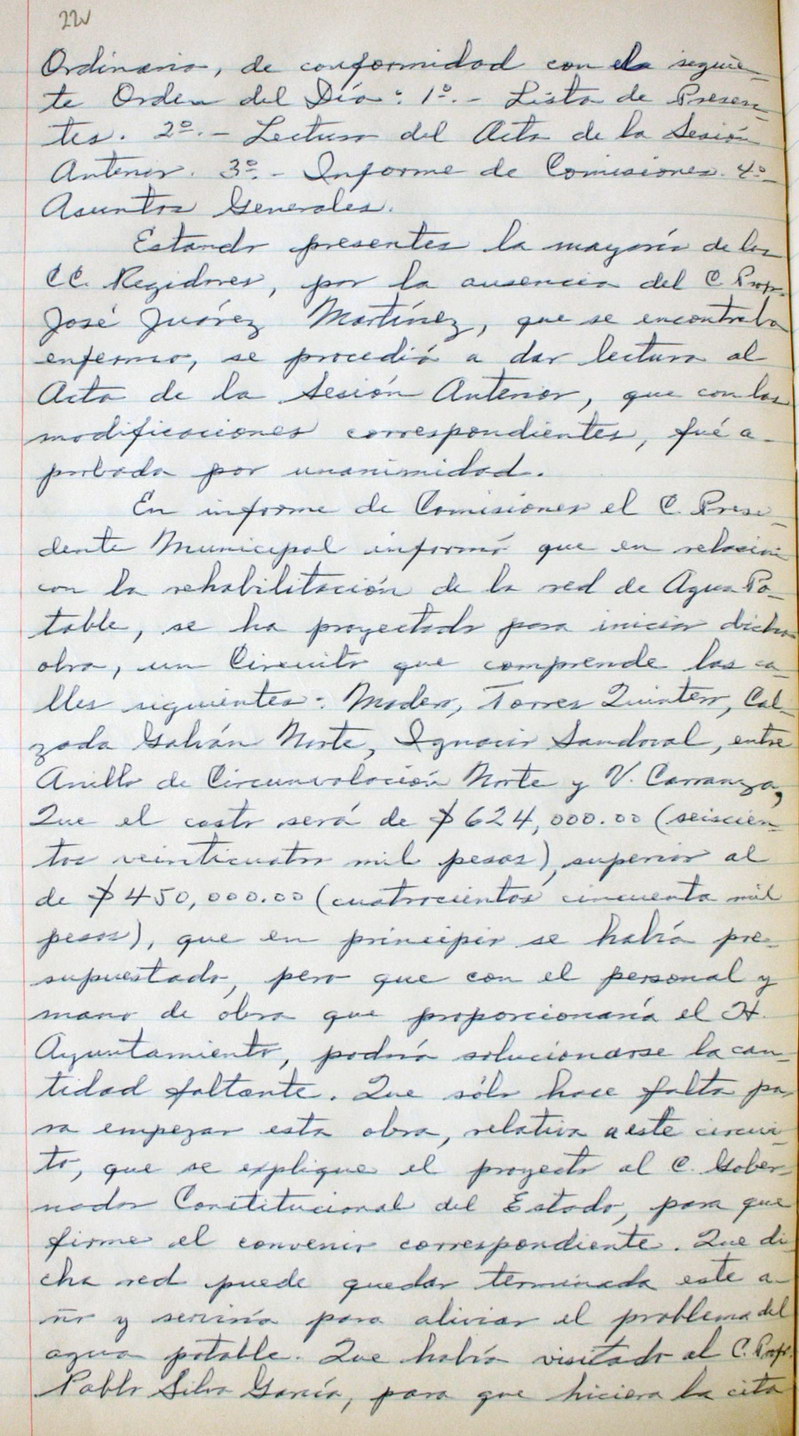 22v
Ordinaria, de conformidad con el siguien-
te Orden del Día: 1º.- Lista de Presen-
tes. 2º.- Lectura del Acta de la Sesión
Anterior. 3º.- Informe de Comisiones. 4º-
Asuntos Generales.
Estando presentes la mayoría de los
CC. Regidores, por la ausencia del C. Profr.
José Juárez Martínez, que se encontraba
enfermo, se procedió a dar lectura al
Acta de la Sesión Anterior, que con las
modificaciones correspondientes, fué a-
probada por unanimidad.
En informe de Comisiones el C. Presi-
dente Municipal informó que en relación
con la rehabilitación de la red de Agua Po-
table, se ha proyectado para iniciar dicha
obra, un Circuito que comprende las ca-
lles siguientes: Madero, Torres Quintero, Cal-
zada Galván Norte, Ignacio Sandoval, entre
Anillo de Circunvalación Norte y V. Carranza,
Que el costo será de $624,000.00 (seiscien-
tos veinticuatro mil pesos), superior al
de $450,000.00 (cuatrocientos cincuenta mil
pesos), que en principio se había pre-
supuestado, pero que con el personal y
mano de obra que proporcionaría el H.
Ayuntamiento, podría solucionarse la can-
tidad faltante. Que sólo hace falta pa-
ra empezar esta obra, relativa a este circui-
to, que se explique el proyecto al C. Gober-
nador Constitucional del Estado, para que
firme el convenio correspondiente. Que di-
cha red puede quedar terminada este a-
ño y serviría para aliviar el problema del
agua potable. Que había visitado al C. Profr.
Pablo Silva García, para que hiciera la cita